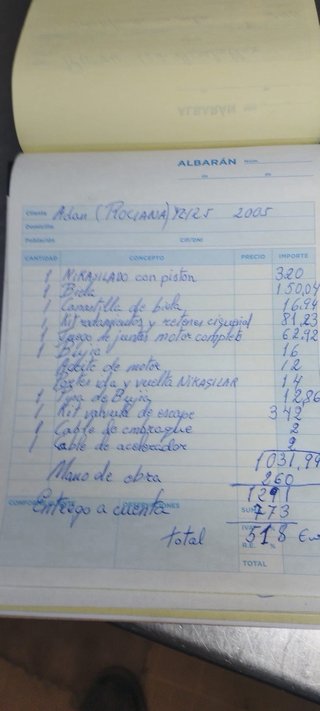 ALBARÁN Núm.
de de
Cliente Adan (ROCIANA) YZ125 2005
Domicilio
Población CIF/DNI
CANTIDAD CONCEPTO PRECIO IMPORTE
1 NIKASILADO con piston 320
1 Biela 150,04
1 Canastilla de biela 16,94
1 Kit rodamientos y retenes cigueñal 81,23
1 Juego de juntas motor completo 62,92
1 Bujia 16
Aceite de motor 12
Portes ida y vuelta NIKASILAR 14
1 Pipa de Bujia 12,86
1 Kit valvula de escape 342
1 Cable de embrague 2
1 Cable de acelerador 9
1031,99
Mano de obra 260
1291
Entrego a cuenta 773
total 518
TOTAL